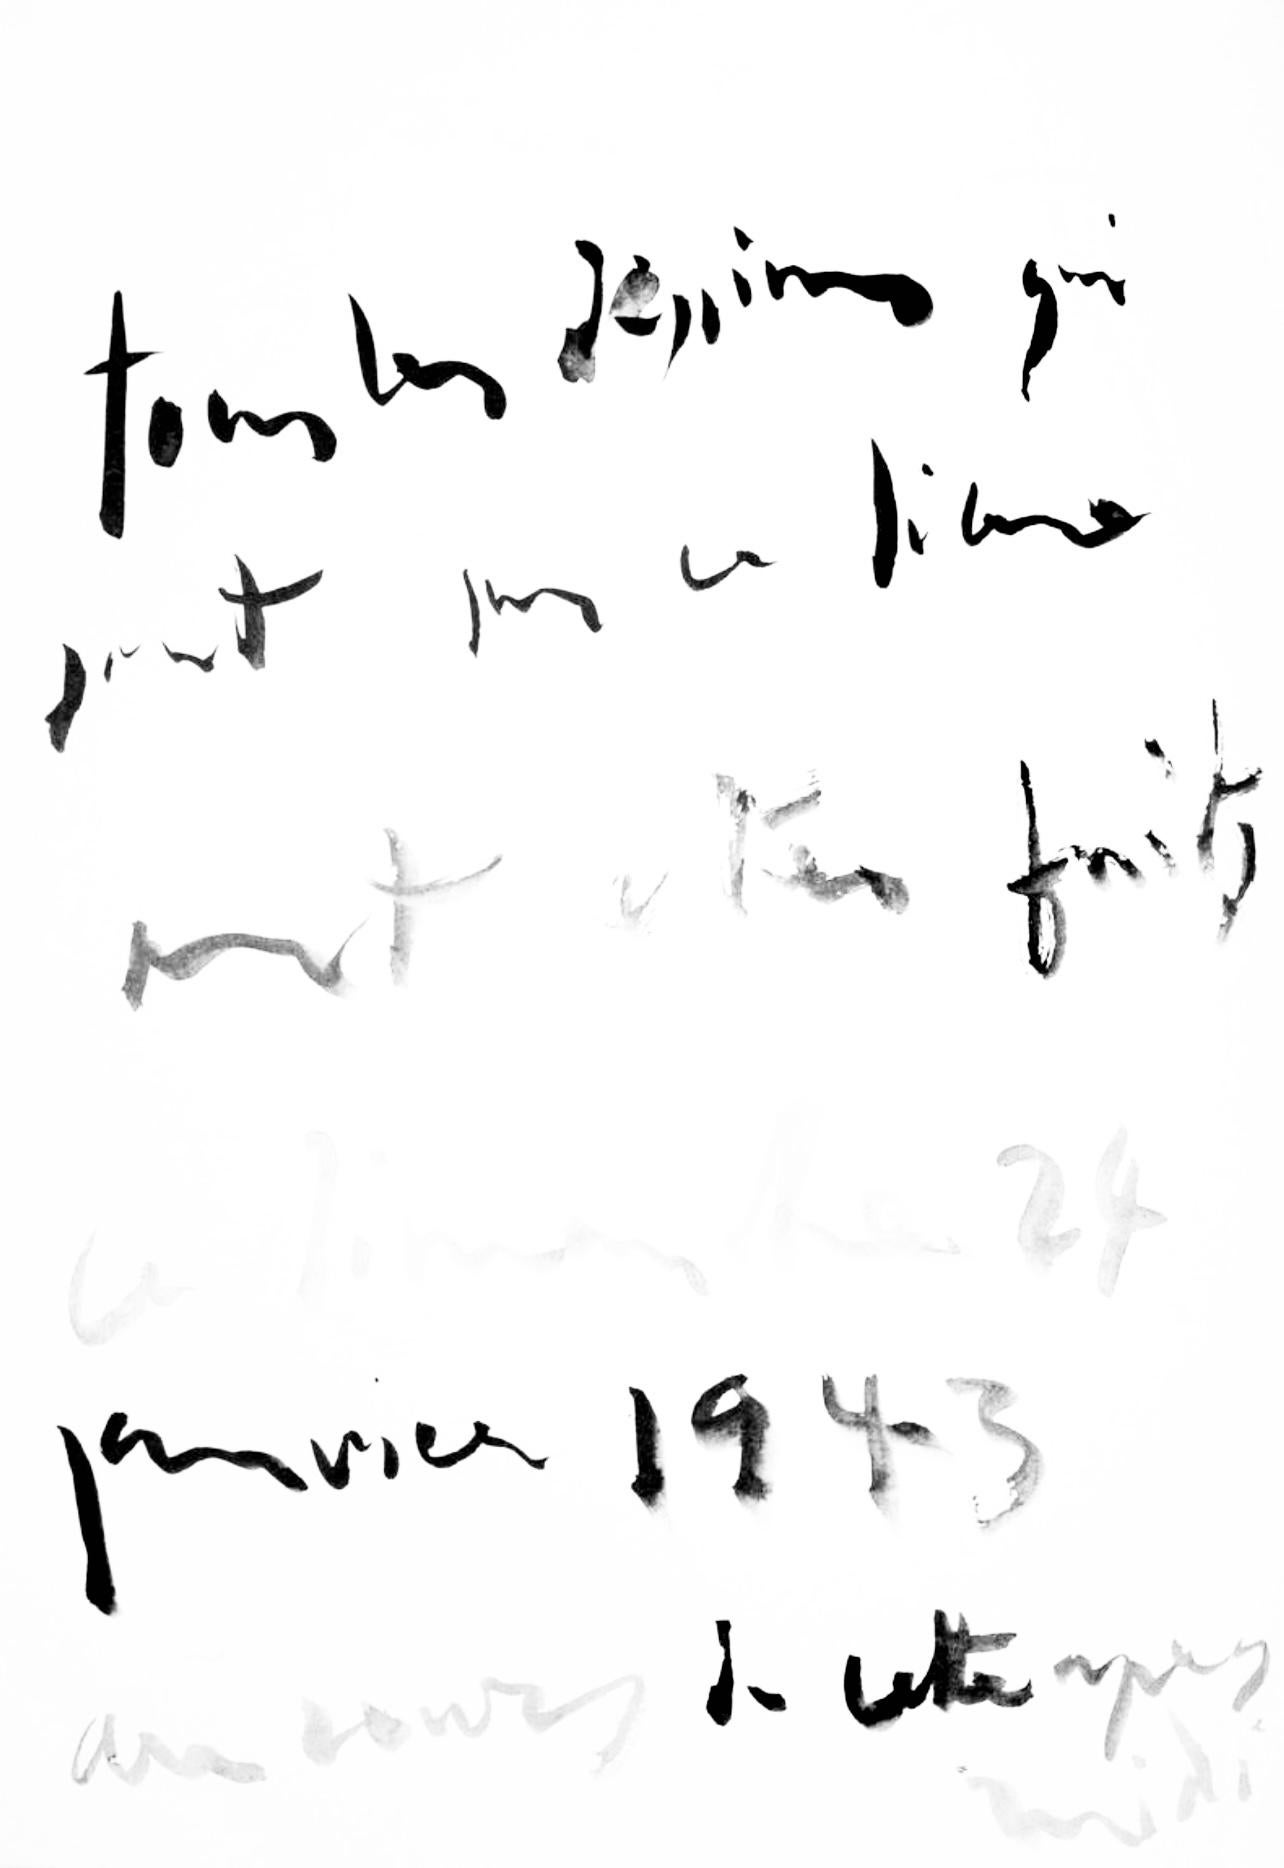 tous les dessins qui
sont sur ce livre
sont etes faits
ce dimanche 24
janvier 1943
au cours de cette apres
midi